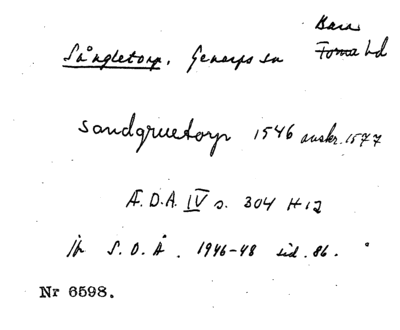 Bara
Sångletorp, Genarps sn Torna hd
Sandgruetorp 1546 avskr. 1577
Æ.D.A. IV s. 304 H 12
jfr S.O.Å. 1946-48 sid. 86.
Nr 6598.